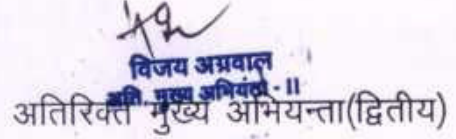 विजय अग्रवाल
अति. मुख्य अभियंता - II
अतिरिक्त मुख्य अभियन्ता(द्वितीय)